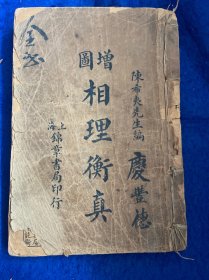 陳希夷先生編
慶豐德
增圖
相理衡真
上海
錦章書局印行
全